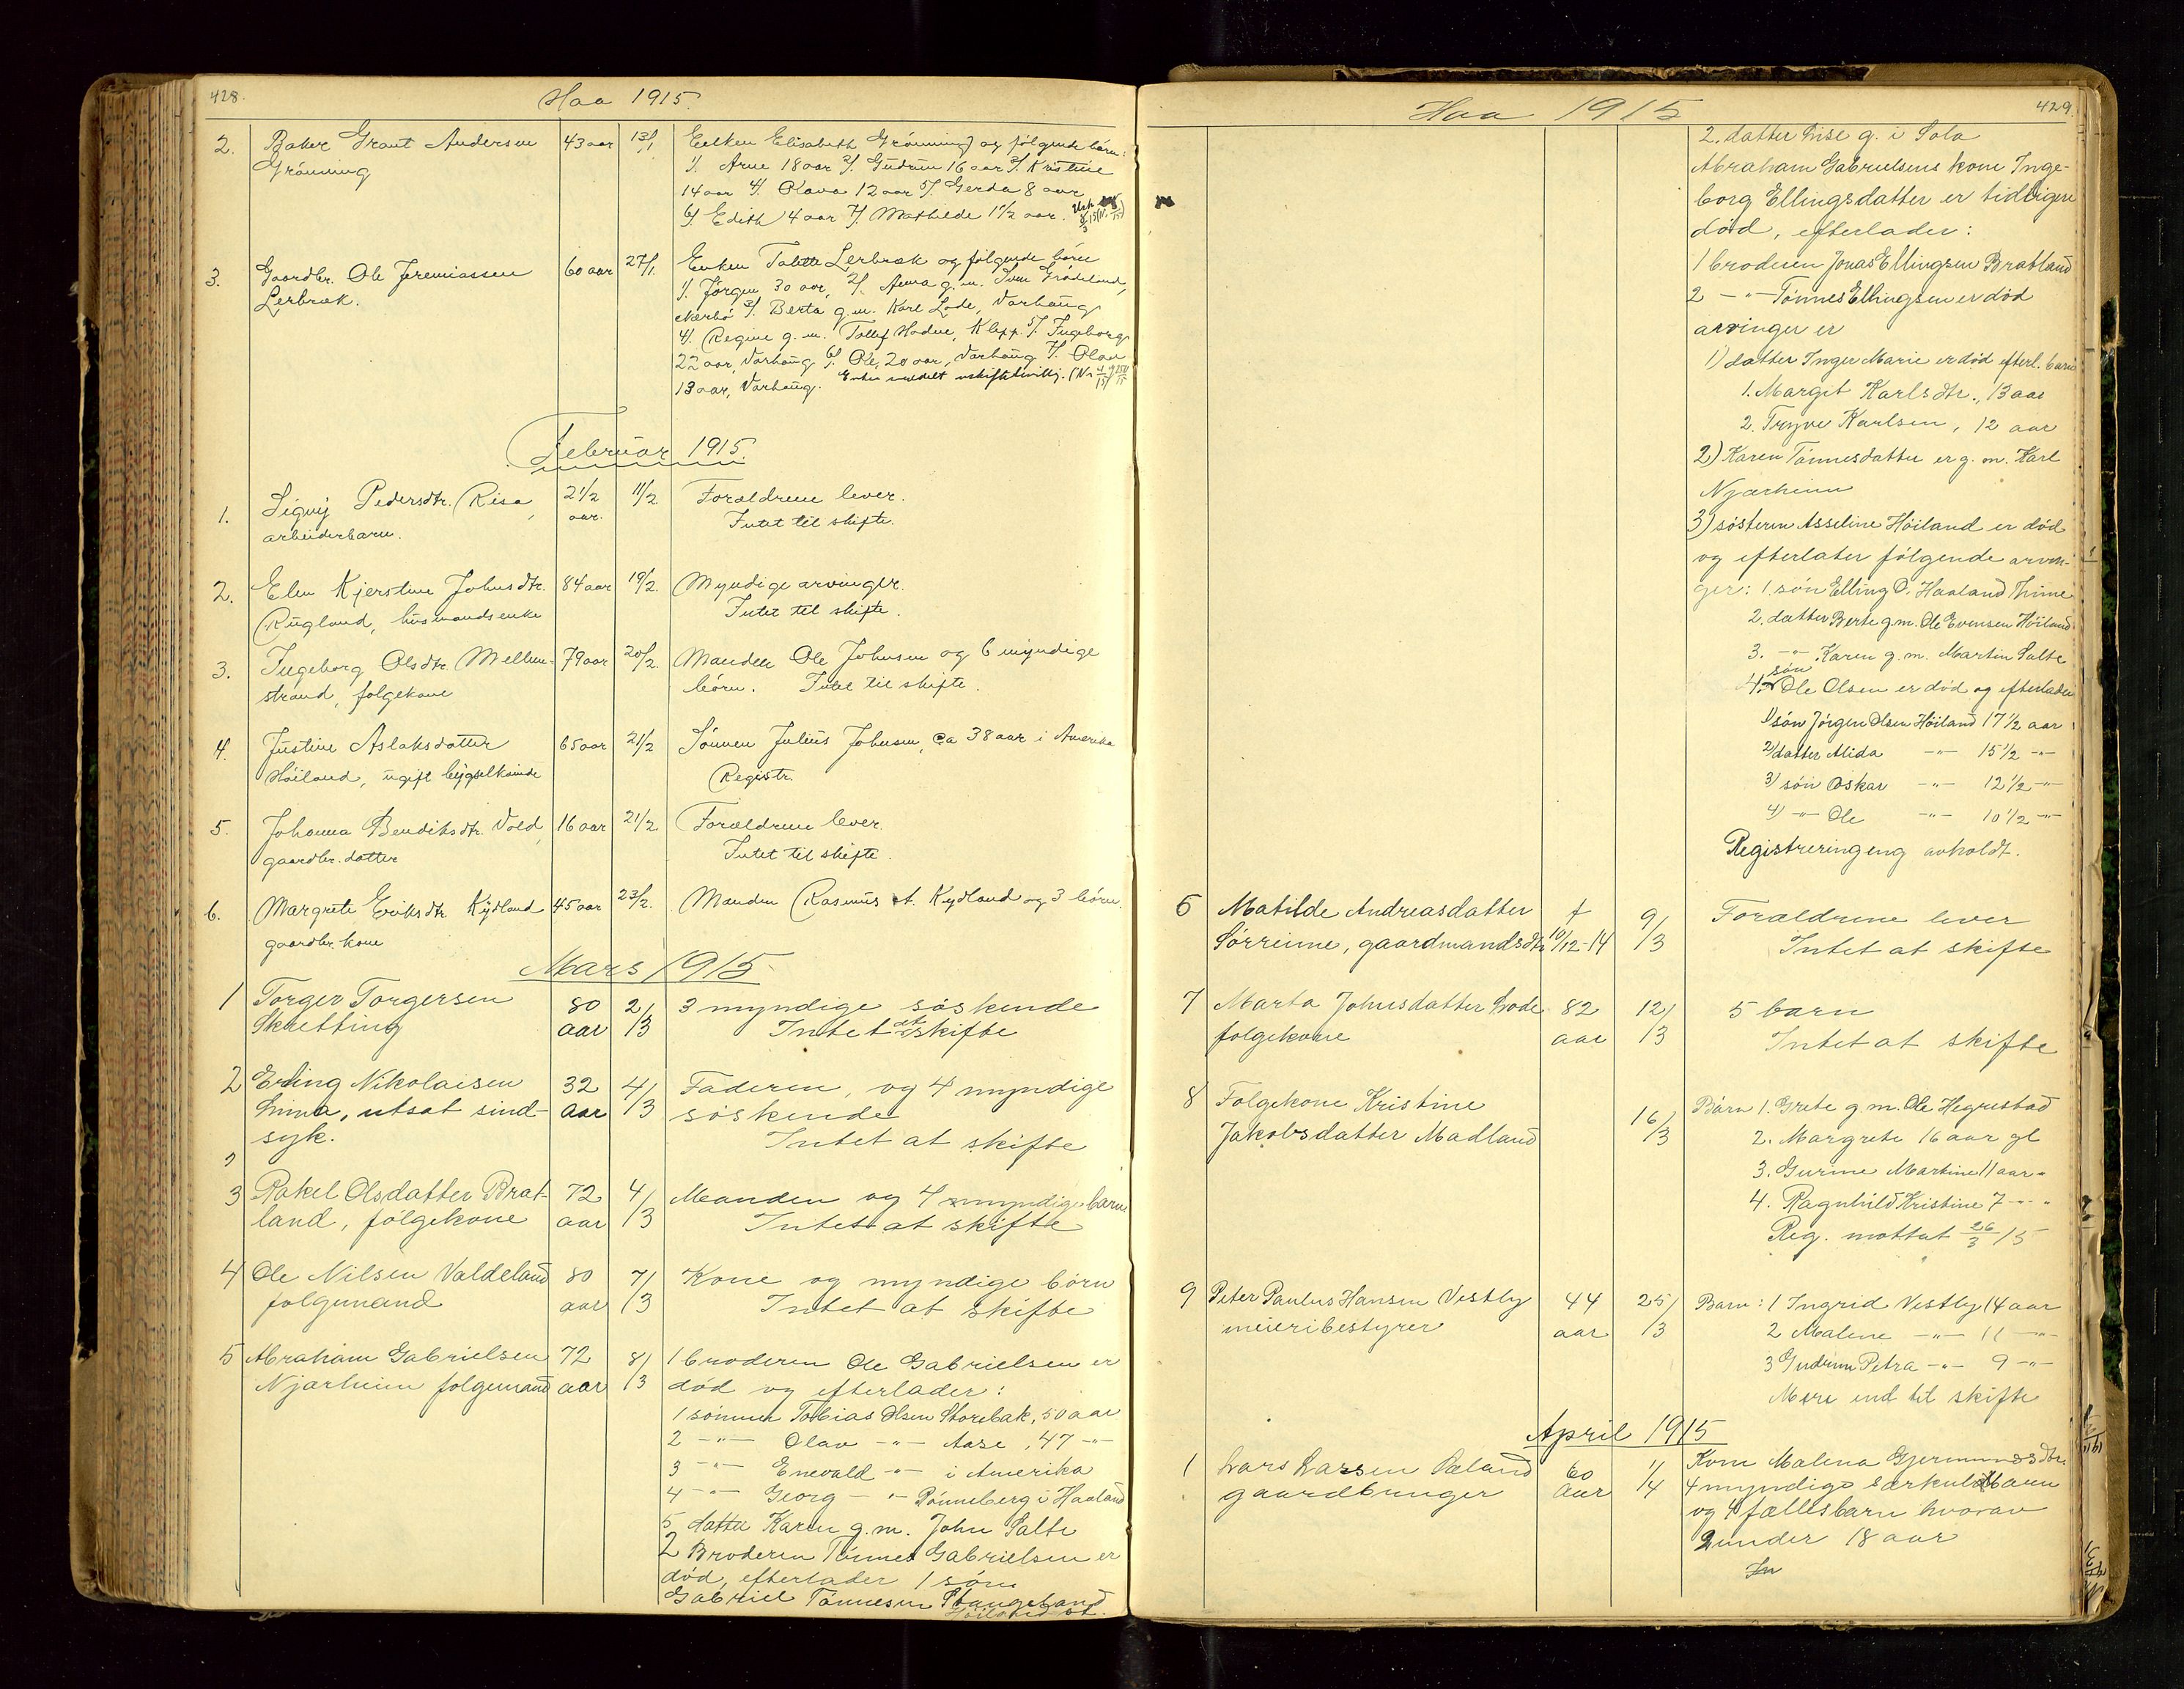 428.
Haa 1915.
2. Baker Grant Andersen 43 aar 13/1 Enken Elisabeth Grønning og følgende børn:
Grønning 1/. Arne 18 aar 2/. Gudrun 16 aar 3/. Kristine
14 aar 4/. Olava 12 aar 5/. Gerda 8 aar
6/. Edith 4 aar 7/. Mathilde 1 1/2 aar.
3. Gaardbr. Ole Jeremiassen 60 aar 27/1. Enken Tabitte Lerbræk og følgende børn
Lerbræk. 1/. Jørgen 30 aar, 2/. Anna g.m. Sven Grødeland,
Nærbø 3/. Berta g.m. Karl Lode, Varhaug
4/. Regine g.m. Tollef Hodne, Klepp. 5/. Ingeborg
22 aar, Varhaug 6/. Ole, 20 aar, Varhaug 7/. Olav
13 aar, Varhaug. Enken meddelt uskiftebevillj.
Februar 1915.
1. Signy Pedersdtr. Risa, 2 1/2 aar. 11/2 Forældrene lever.
arbeiderbarn. Intet til skifte.
2. Elen Kjerstine Johnsdtr. 84 aar 19/2. Myndige arvinger.
Rugland, husmandsenke Intet til skifte.
3. Ingeborg Olsdtr Mellem- 79 aar 20/2. Manden Ole Johnsen og 6 myndige
strand, folgekone børn. Intet til skifte.
4. Justine Aslaksdatter 65 aar 21/2 Sønnen Julius Johnsen, ca 38 aar i Amerika
Høiland, ugift bygselkvinde Registr.
5. Johanna Bendiksdtr. Vold, 16 aar 21/2 Forældrene lever.
gaardbr. datter Intet til skifte.
6. Margrete Eriksdtr. Kydland 45 aar 23/2. Manden Rasmus A. Kydland og 3 børn.
gaardbr. kone
Mars 1915
1 Torger Torgersen 80 2/3 3 myndige søskende
Skretting aar Intet at skifte
2 Erling Nikolaisen 32 4/3 Faderen, og 4 myndige
Lima, utsat sind- aar søskende
syk. Intet at skifte
3 Rakel Olsdatter Brat- 72 4/3 Manden og 4 myndige barn
land, følgekone aar Intet at skifte
4 Ole Nilsen Valdeland 80 7/3 Kone og myndige børn
folgemand aar Intet at skifte
5 Abraham Gabrielsen 72 8/3 1 broderen Ole Gabrielsen er
Njærheim folgemand aar død og efterlader:
1 sønnen Tobias Olsen Storebak, 50 aar
2 -"- Olav -"- Aase, 47 -"-
3 -"- Enevald -"- i Amerika
4 -"- Georg -"- Rønneberg i Haaland
5 datter Karen g.m. John Salte
2 Broderen Tønnes Gabrielsen er
død, efterlader 1 søn
Gabriel Tønnesen Stangeland
429.
Haa 1915
2. datter Lise g. i Sola
Abraham Gabrielsens kone Inge-
borg Ellingsdatter er tidligere
død, efterlader:
1 broderen Jonas Ellingsen Bratland
2 -"- Tønnes Ellingsen er død
arvinger er
1) datter Inger Marie er død efterl. barn
1. Margit Karlsdtr., 13 aar
2. Trygve Karlsen, 12 aar
2) Karen Tønnesdatter er g.m. Karl
Njærheim
3) søsteren Asseline Høiland er død
og efterlater følgende arvin-
ger: 1. søn Elling O. Haaland Thime
2. datter Berte g.m. Ole Evensen Høiland
3. -"- Karen g.m. Martin Salte
4. søn Ole Olsen er død og efterlader
1) søn Jørgen Olsen Høiland 17 1/2 aar
2) datter Alida -"- 15 1/2 -"-
3) søn Oskar -"- 12 1/2 -"-
4) -"- Ole -"- 10 1/2 -"-
Registrering eng avholdt.
6 Matilde Andreasdatter f 9/3 Forældrene lever
Sørreime, gaardmandsdtr 10/12-14 Intet at skifte
7 Marta Johnsdatter Lode 82 12/3 5 barn
folgekone aar Intet at skifte
8 Folgekone Kristine 16/3 Børn 1. Grete g.m. Ole Hegrestad
Jakobsdatter Madland 2. Margrete 16 aar gl
3. Gurine Martine 11 aar "
4. Ragnhild Kristine 7 -"- "
Reg. mottat 26/3 15
9 Peter Paulus Hansen Vestly 44 25/3 Barn: 1 Ingrid Vestly 14 aar
meieribestyrer aar 2 Malene -"- 11 -"-
3 Gudrun Petra -"- 9 -"-
Mere end til skifte
April 1915
1 Lars Larsen Æland 60 1/4 Kone Malena Gjermundsdtr.
gaardbruger aar 4 myndige særkulsbarn
og 4 fællesbarn hvorav
2 under 18 aar
In